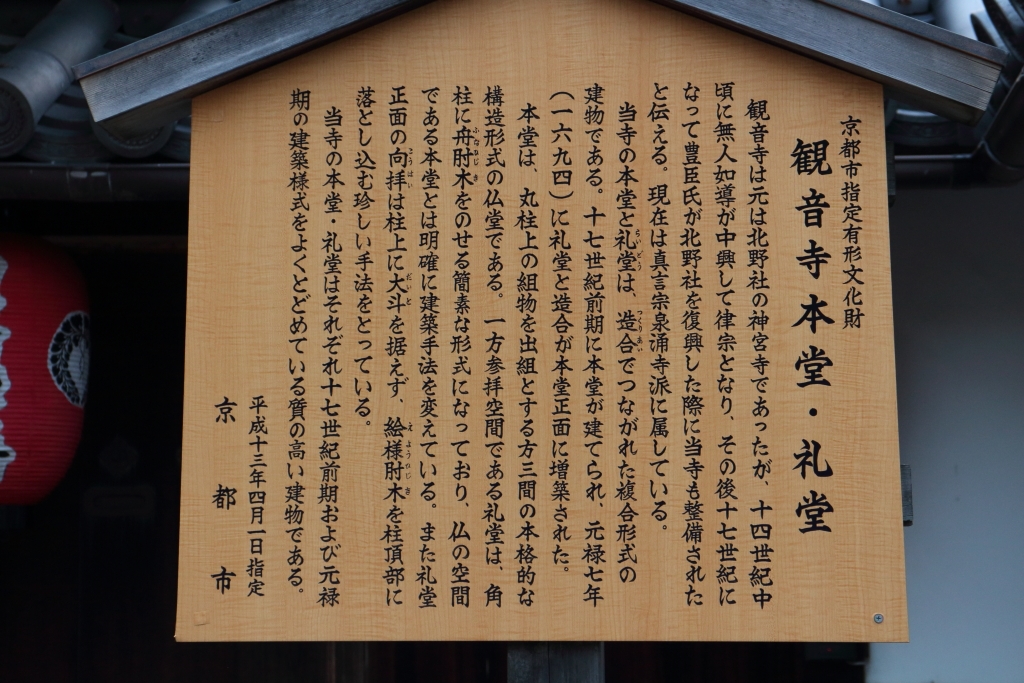 京都市指定有形文化財
観音寺本堂・礼堂
観音寺は元は北野社の神宮寺であったが、十四世紀中
頃に無人如導が中興して律宗となり、その後十七世紀に
なって豊臣氏が北野社を復興した際に当寺も整備された
と伝える。現在は真言宗泉涌寺派に属している。
当寺の本堂と礼堂は、造合でつながれた複合形式の
らいどう つくりあい
建物である。十七世紀前期に本堂が建てられ、元禄七年
(一六九四)に礼堂と造合が本堂正面に増築された。
本堂は、丸柱上の組物を出組とする方三間の本格的な
構造形式の仏堂である。一方参拝空間である礼堂は、角
柱に舟肘木をのせる簡素な形式になっており、仏の空間
ふなひじき
である本堂とは明確に建築手法を変えている。また礼堂
正面の向拝は柱上に大斗を据えず、絵様肘木を柱頂部に
こうはい だいと えようひじき
落とし込む珍しい手法をとっている。
当寺の本堂・礼堂はそれぞれ十七世紀前期および元禄
期の建築様式をよくとどめている質の高い建物である。
平成十三年四月一日指定
京都市